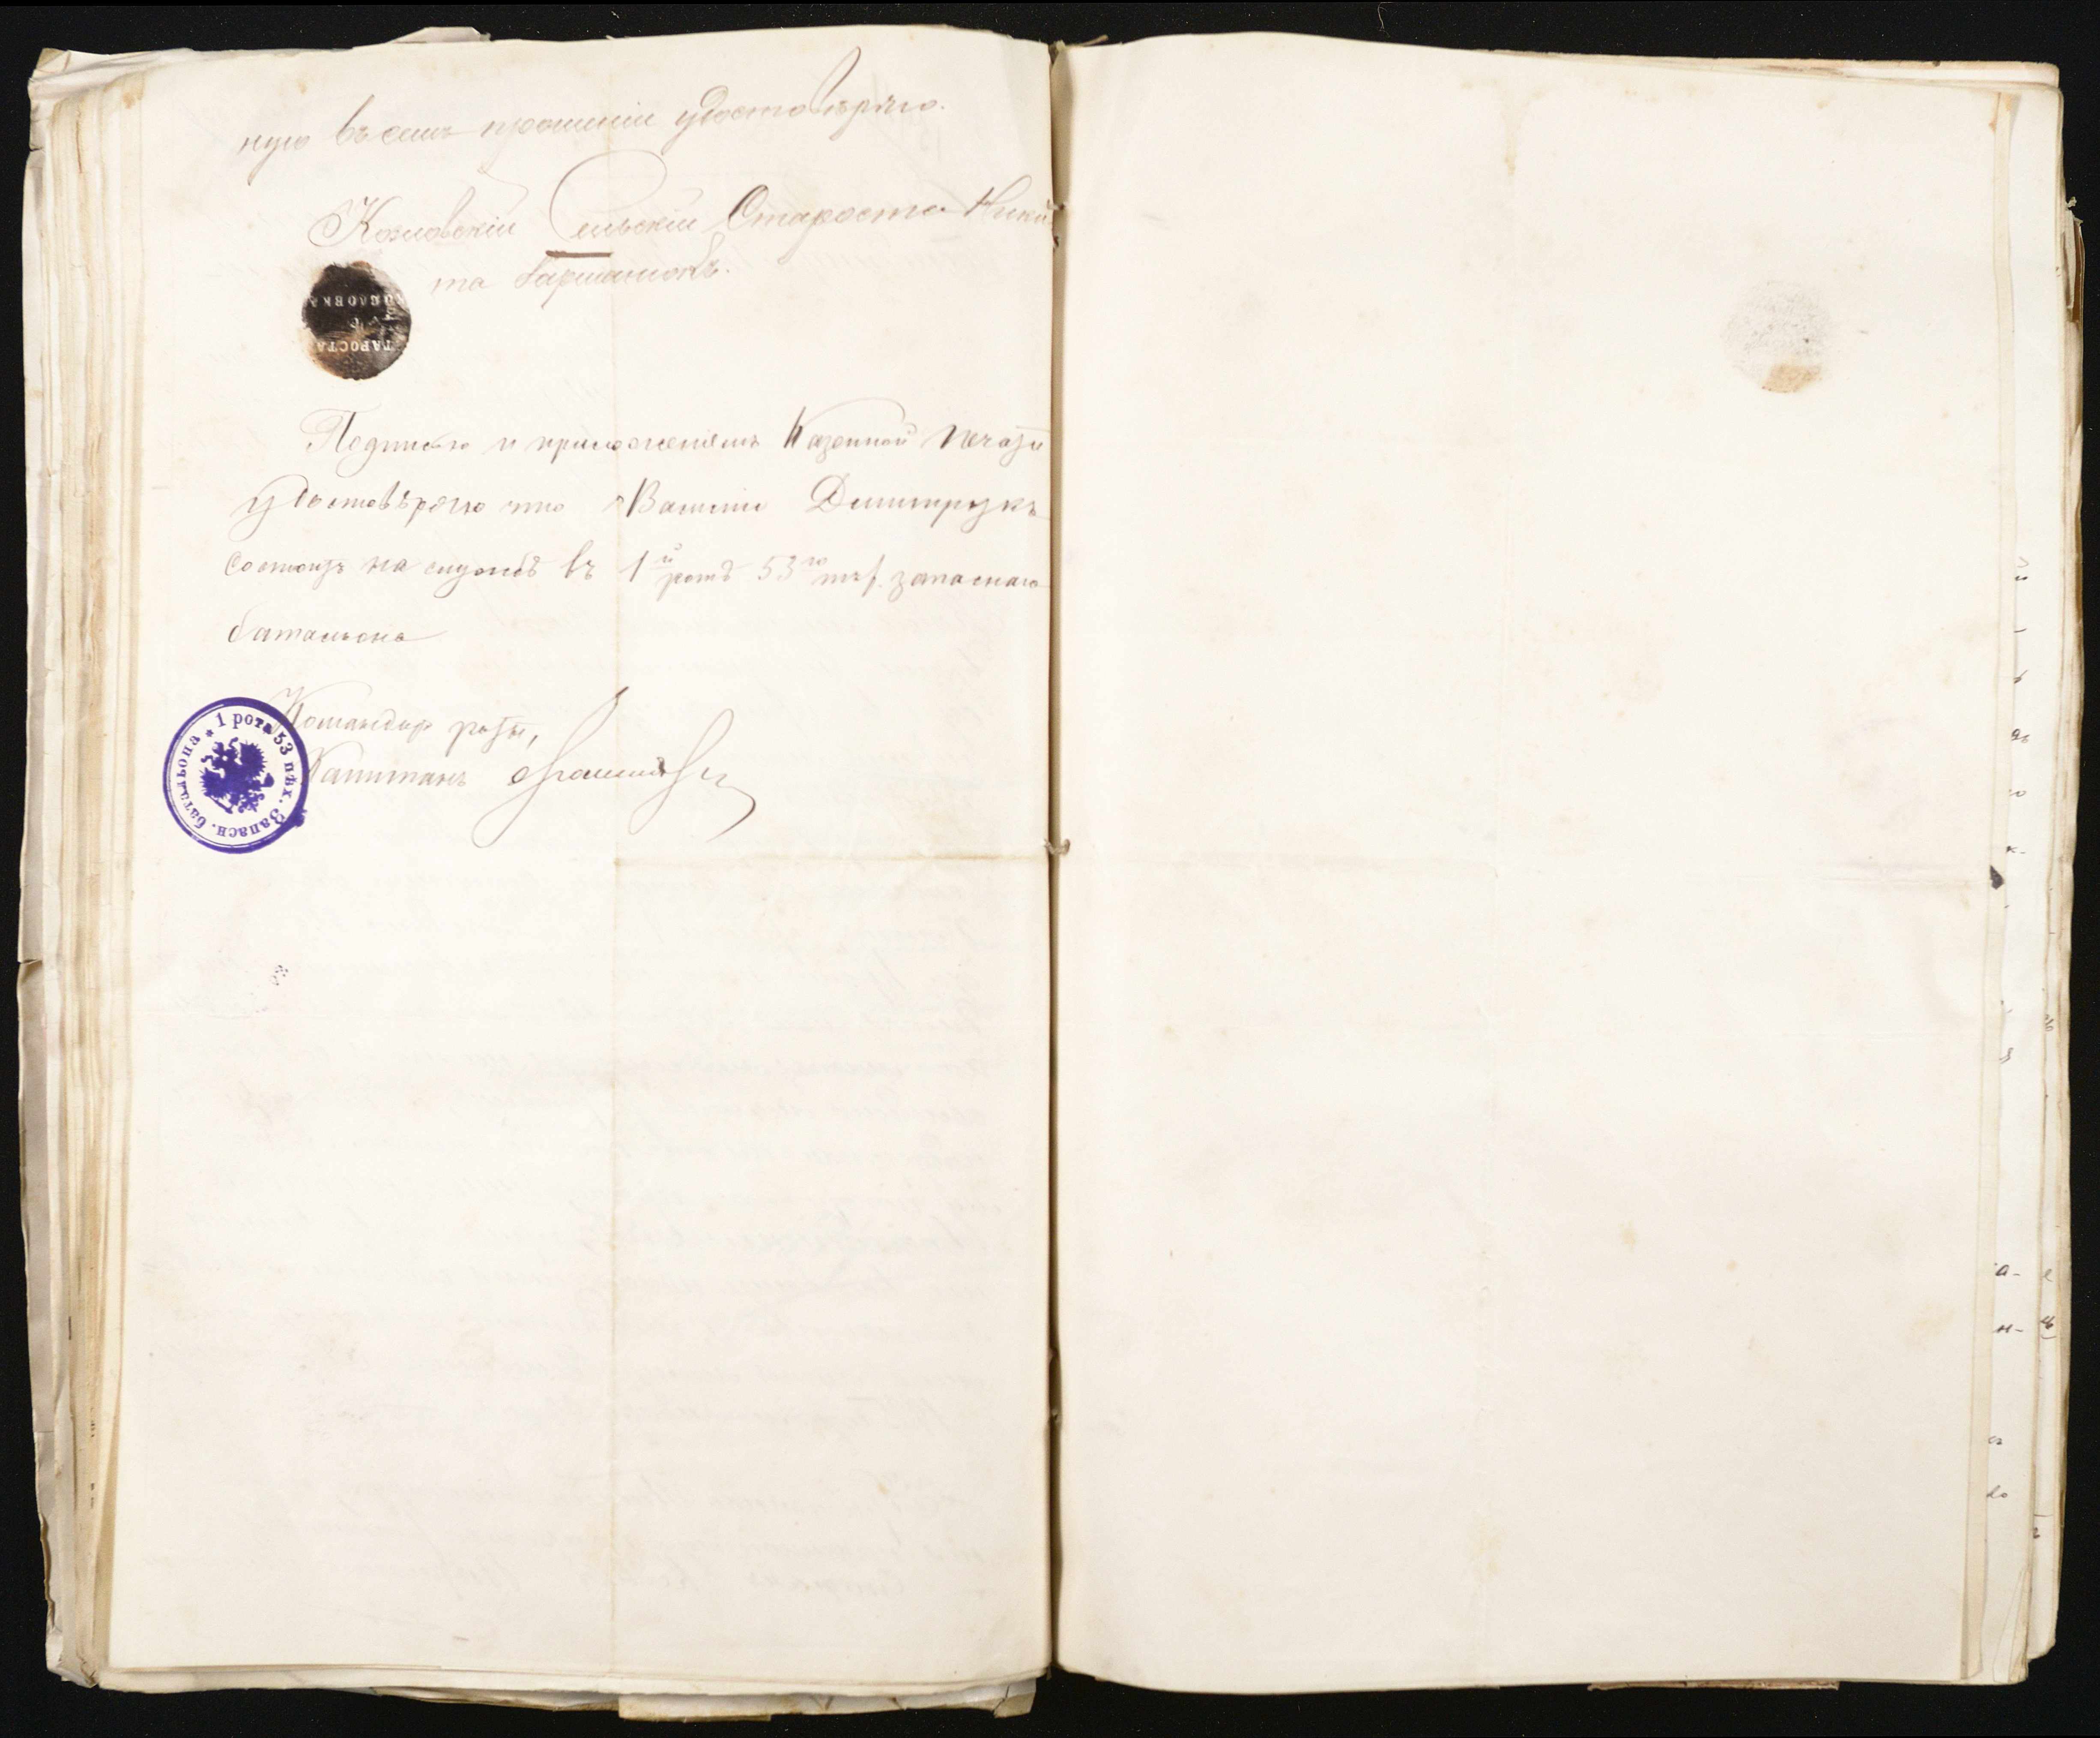 ную въ семъ прошеніи удостовѣряю.
Козловскій Сельскій Староста Ники
та
КОЗЛОВКА
СТАРОСТА
Подписью и приложеніемъ Казенной печати
удостовѣряю что Василій Димитрукъ
состоитъ на службѣ въ 1й ротѣ 53го пѣх. запаснаго
баталіона
Командиръ роты,
Капитанъ
* 1 рота 53 пѣх. Запасн. баталіона